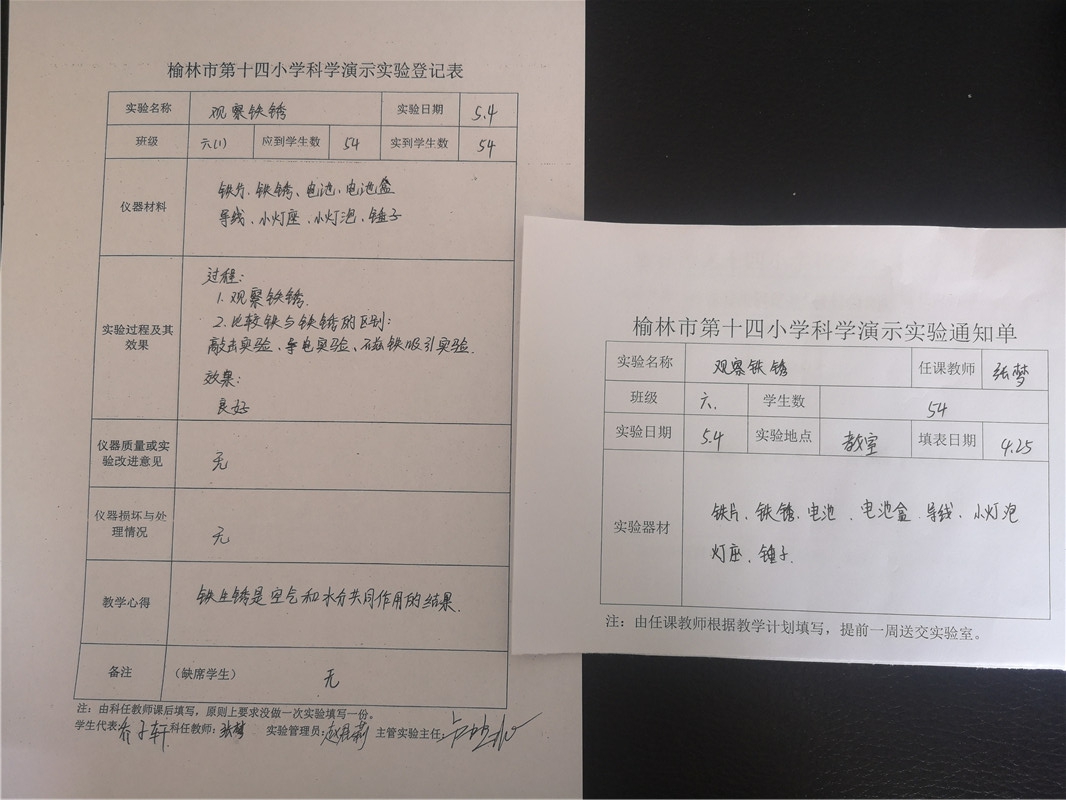 榆林市第十四小学科学演示实验登记表
实验名称 观察铁锈 实验日期 5.4
班级 六(1) 应到学生数 54 实到学生数 54
仪器材料
铁片、铁锈、电池、电池盒
导线、小灯座、小灯泡、锤子
实验过程及其
效果
过程:
1.观察铁锈.
2.比较铁与铁锈的区别:
敲击实验、导电实验、磁铁吸引实验.
效果:
良好
仪器质量或实
验改进意见
无
仪器损坏与处
理情况
无
教学心得 铁生锈是空气和水分共同作用的结果.
备注 (缺席学生) 无
注:由科任教师课后填写,原则上要求没做一次实验填写一份。
学生代表: 子轩 科任教师:张梦 实验管理员: 主管实验主任:
榆林市第十四小学科学演示实验通知单
实验名称 观察铁锈 任课教师 张梦
班级 六. 学生数 54
实验日期 5.4 实验地点 教室 填表日期 4.25
实验器材
铁片、铁锈、电池、电池盒、导线、小灯泡
灯座、锤子.
注:由任课教师根据教学计划填写,提前一周送交实验室。